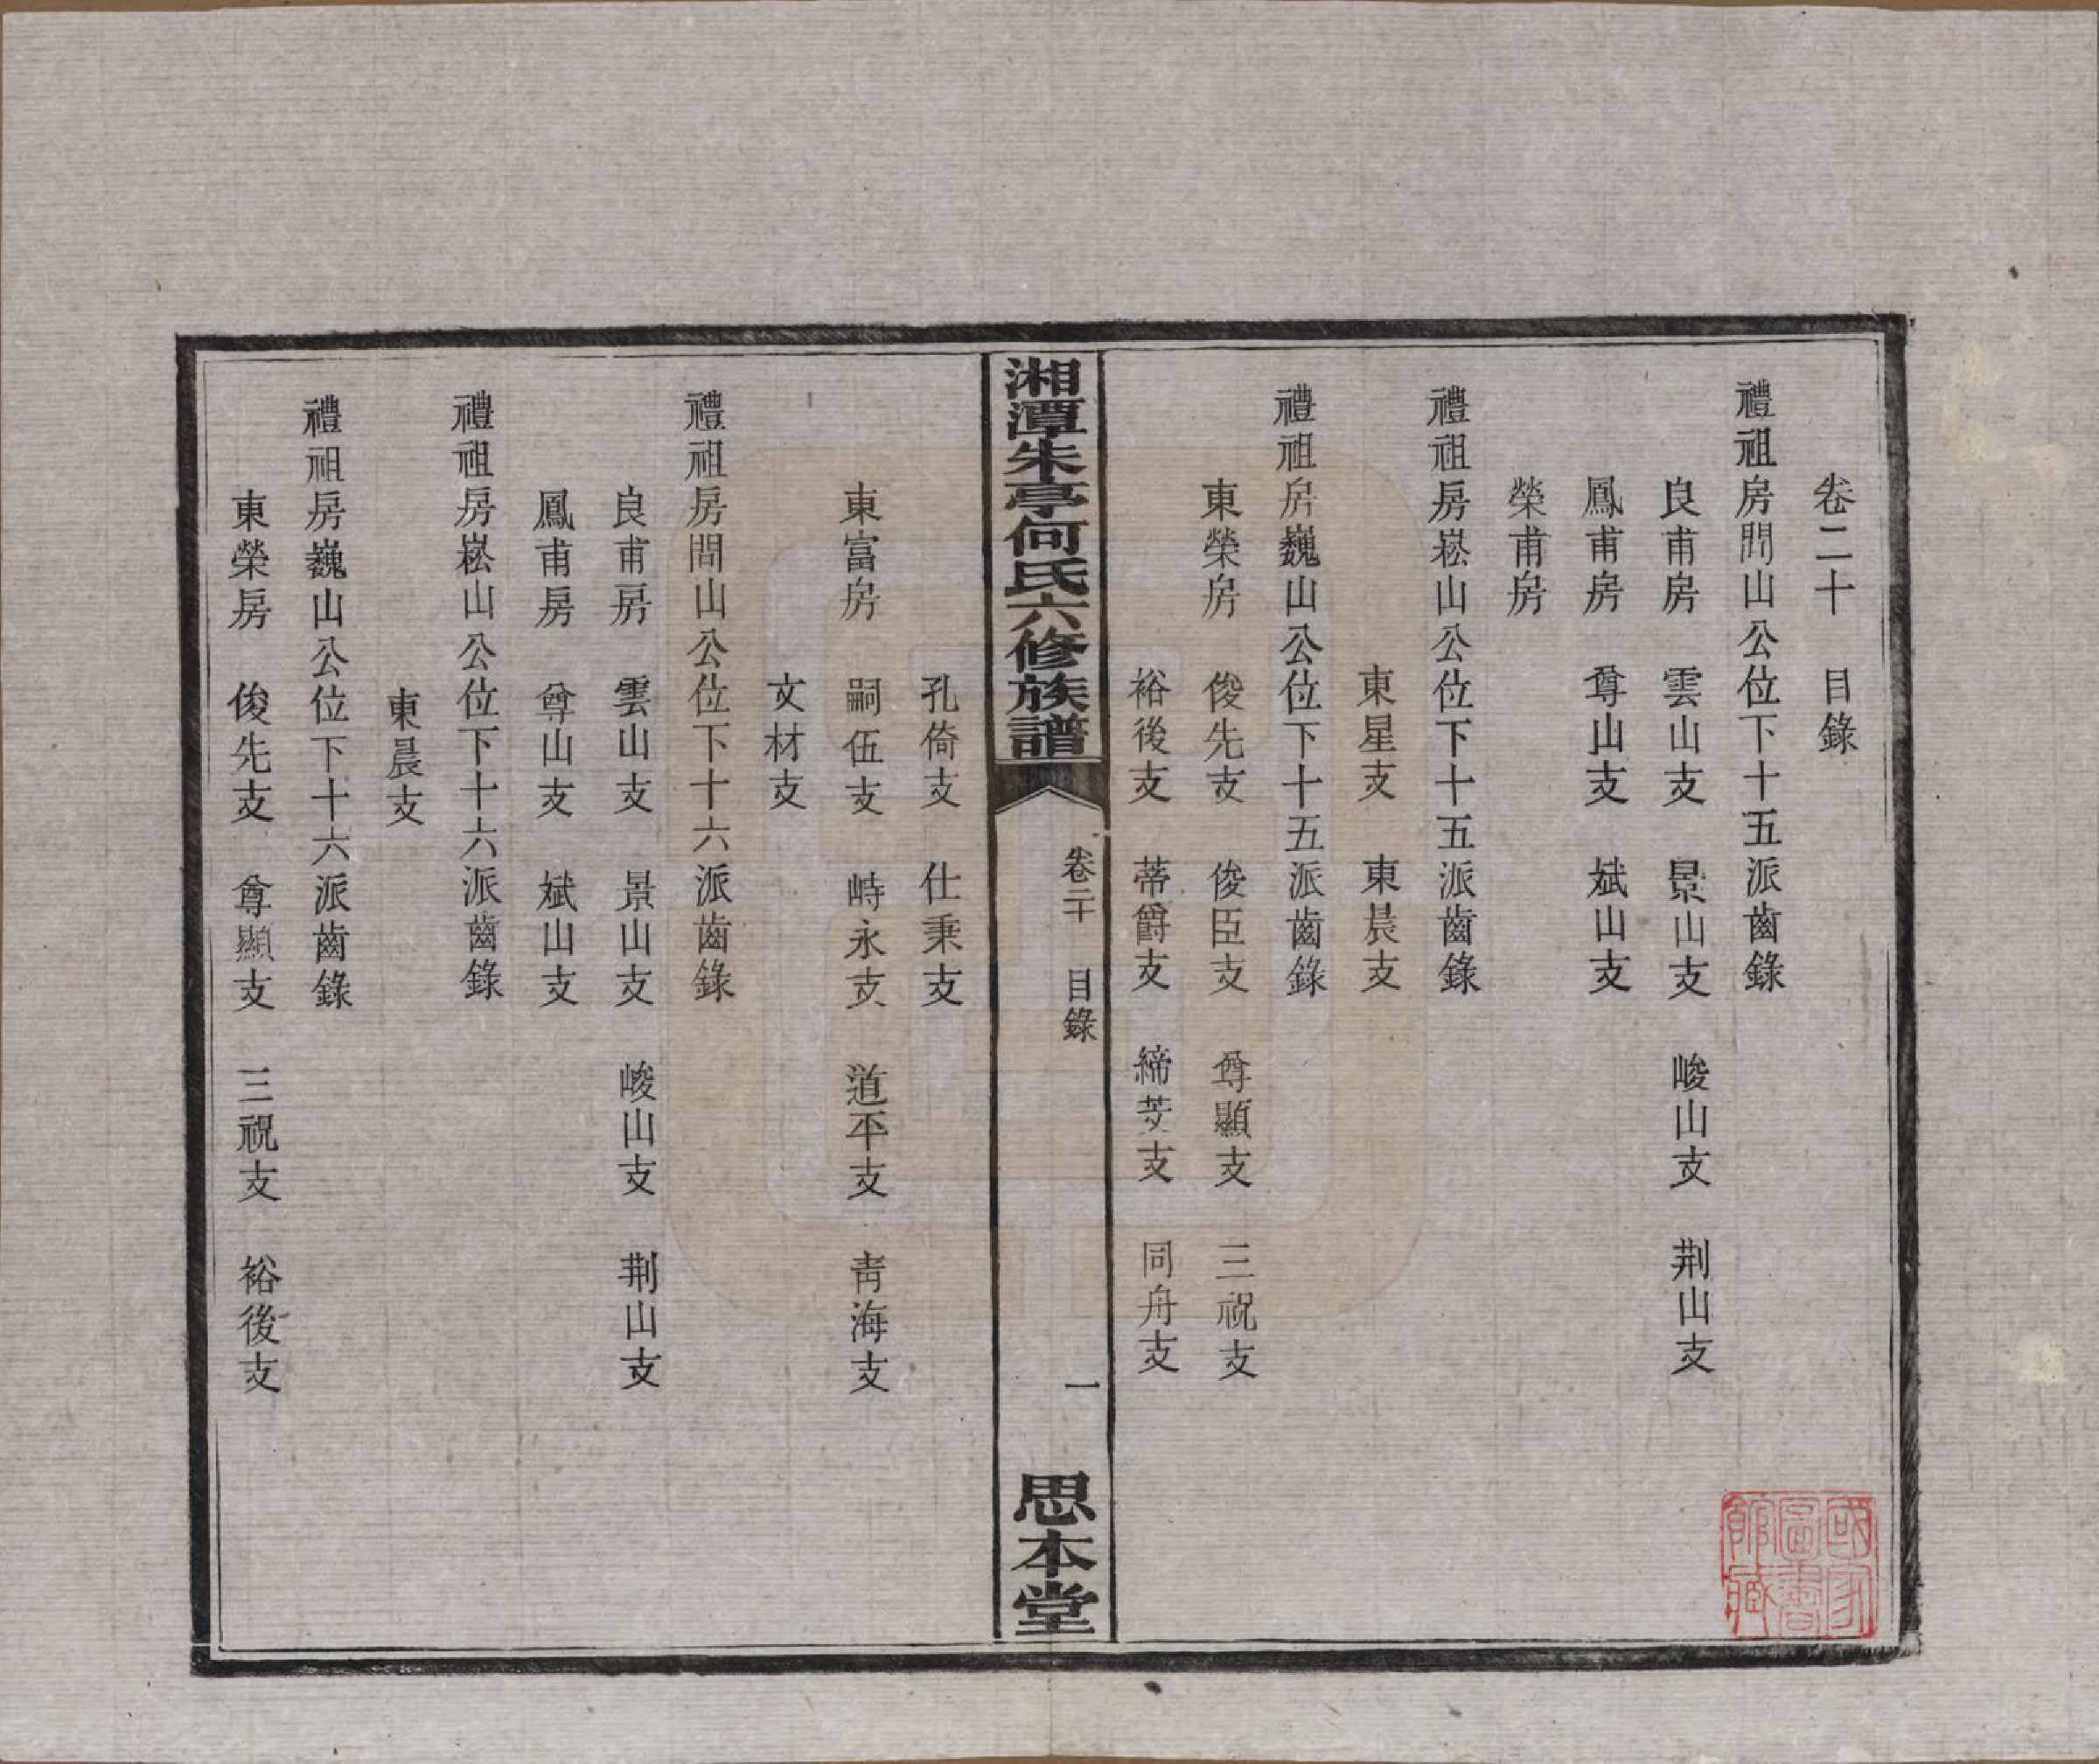 卷二十　目錄
禮祖房門山公位下十五派齒錄
良甫房　雲山支　景山支　峻山支　荆山支
鳳甫房　尊山支　斌山支
榮甫房
禮祖房崧山公位下十五派齒錄
東星支　東晨支
禮祖房巍山公位下十五派齒錄
東榮房　俊先支　俊臣支　尊顯支　三祝支
裕後支　蒂爵支　締芠支　同舟支
湘潭朱亭何氏六修族譜
卷二十　目錄　一
思本堂
孔倚支　仕秉支
東富房　嗣伍支　峙永支　道平支　青海支
文材支
禮祖房間山公位下十六派齒錄
良甫房　雲山支　景山支　峻山支　荆山支
鳳甫房　尊山支　斌山支
禮祖房崧山公位下十六派齒錄
東晨支
禮祖房巍山公位下十六派齒錄
東榮房　俊先支　尊顯支　三祝支　裕後支
國家圖書館藏